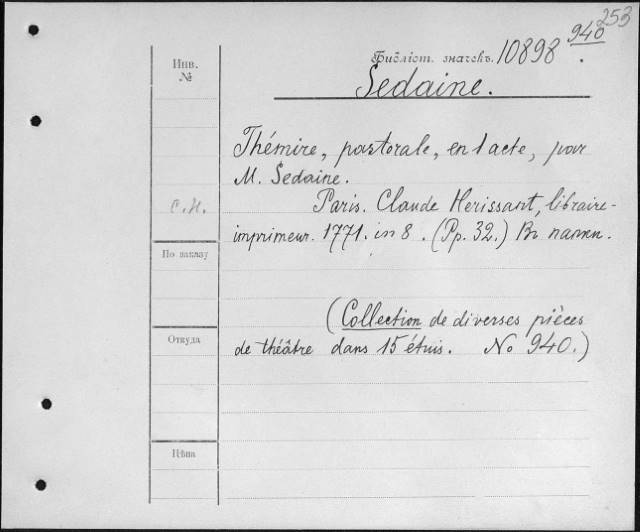 253
940
Инв. №
Библіот. значекъ. 10898.
Sedaine.
Thémire, pastorale, en 1 acte, par
M. Sedaine.
С.Н.
Paris. Claude Herissant, libraire-
imprimeur. 1771. in 8. (Pp. 32.) Въ папкѣ.
По заказу
(Collection de diverses pièces
Откуда
de théâtre dans 15 étuis. No 940.)
Цѣна